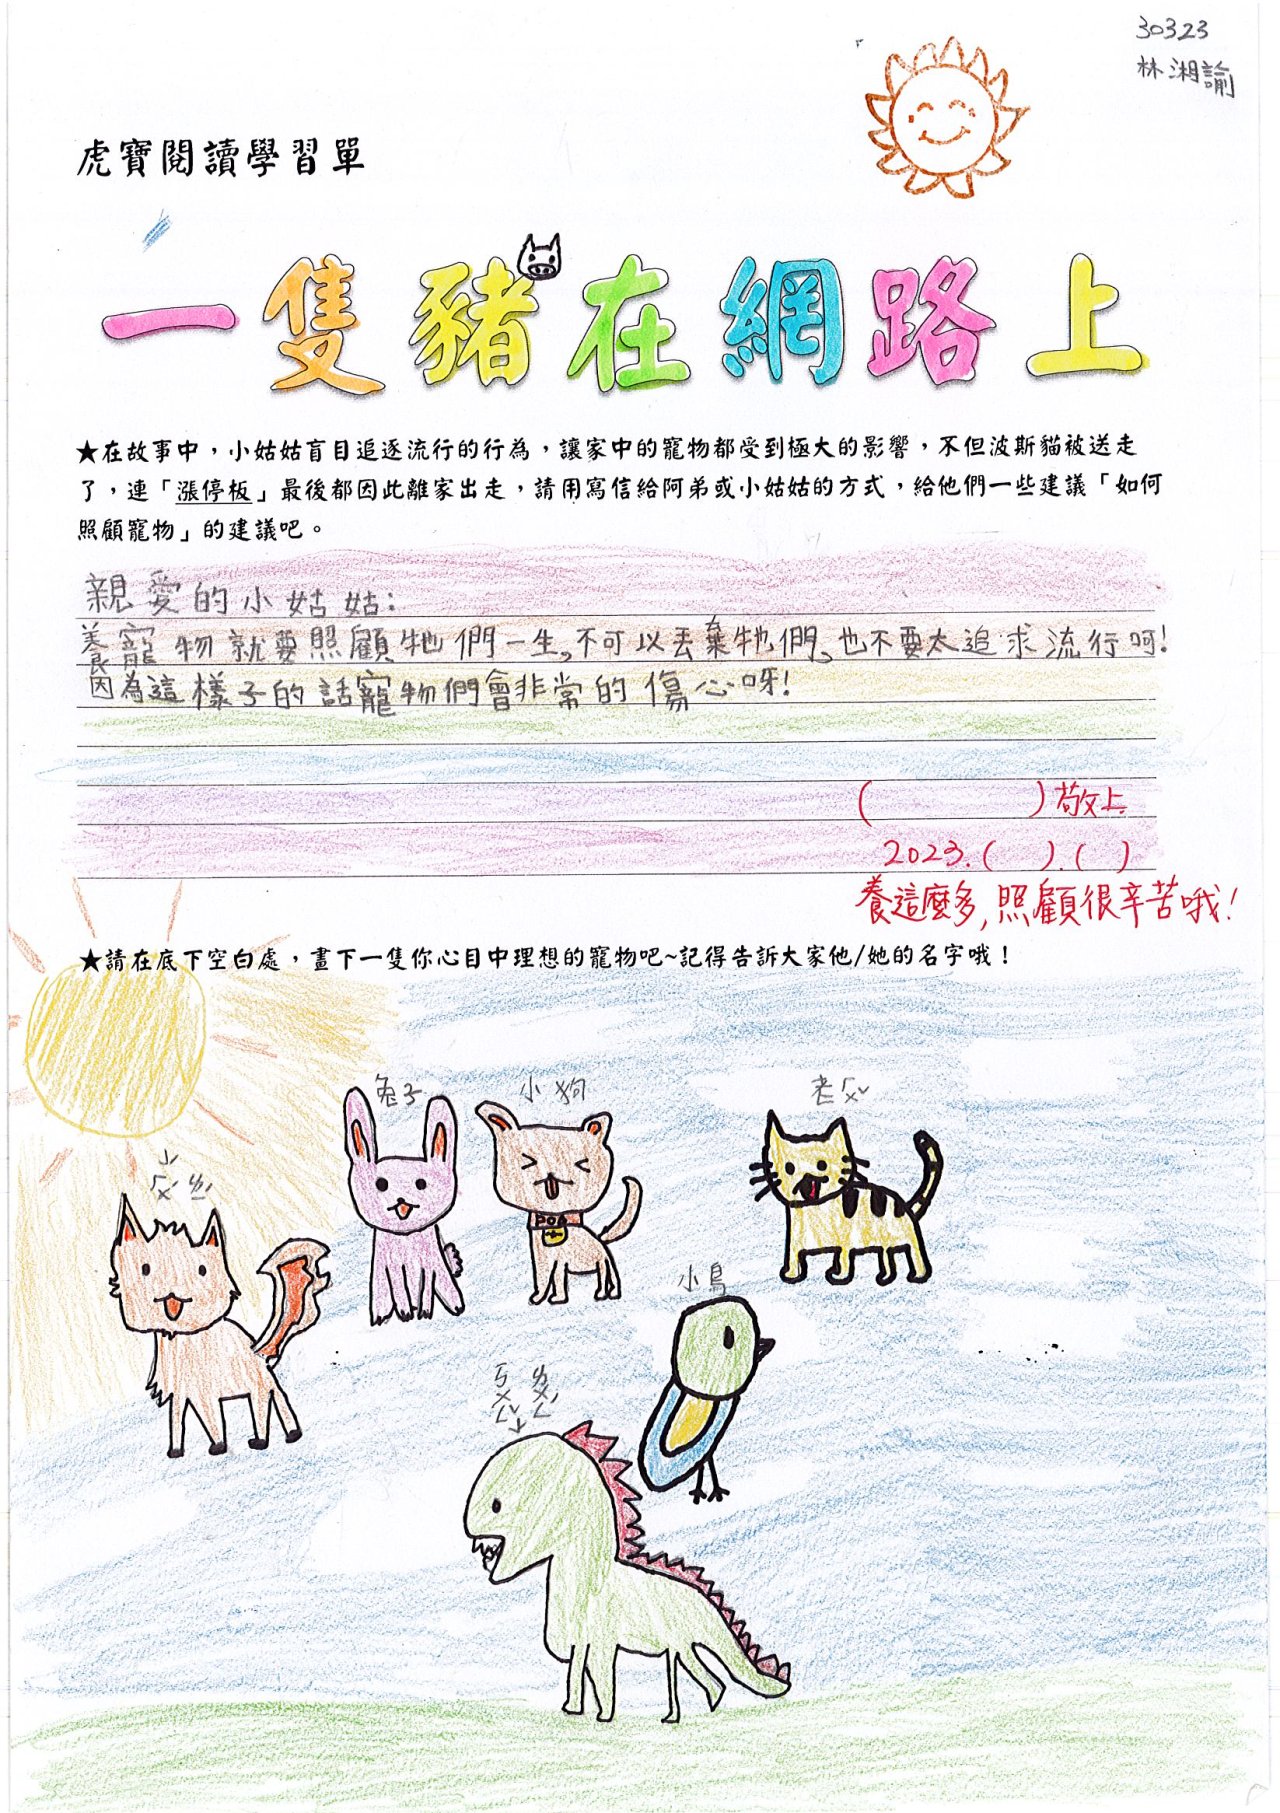 30323
林湘諭
虎寶閱讀學習單
一隻豬在網路上
★在故事中，小姑姑盲目追逐流行的行為，讓家中的寵物都受到極大的影響，不但波斯貓被送走
了，連「漲停板」最後都因此離家出走，請用寫信給阿弟或小姑姑的方式，給他們一些建議「如何
照顧寵物」的建議吧。
親愛的小姑姑：
養寵物就要照顧牠們一生，不可以丟棄牠們，也不要太追求流行呵！
因為這樣子的話寵物們會非常的傷心呀！
(　　　　)敬上
2023.(　).(　)
養這麼多，照顧很辛苦哦！
★請在底下空白處，畫下一隻你心目中理想的寵物吧~記得告訴大家他/她的名字哦！
兔子
小狗
老ㄏㄨˇ
小鳥
ㄎㄨㄥˇ ㄌㄨㄥˊ